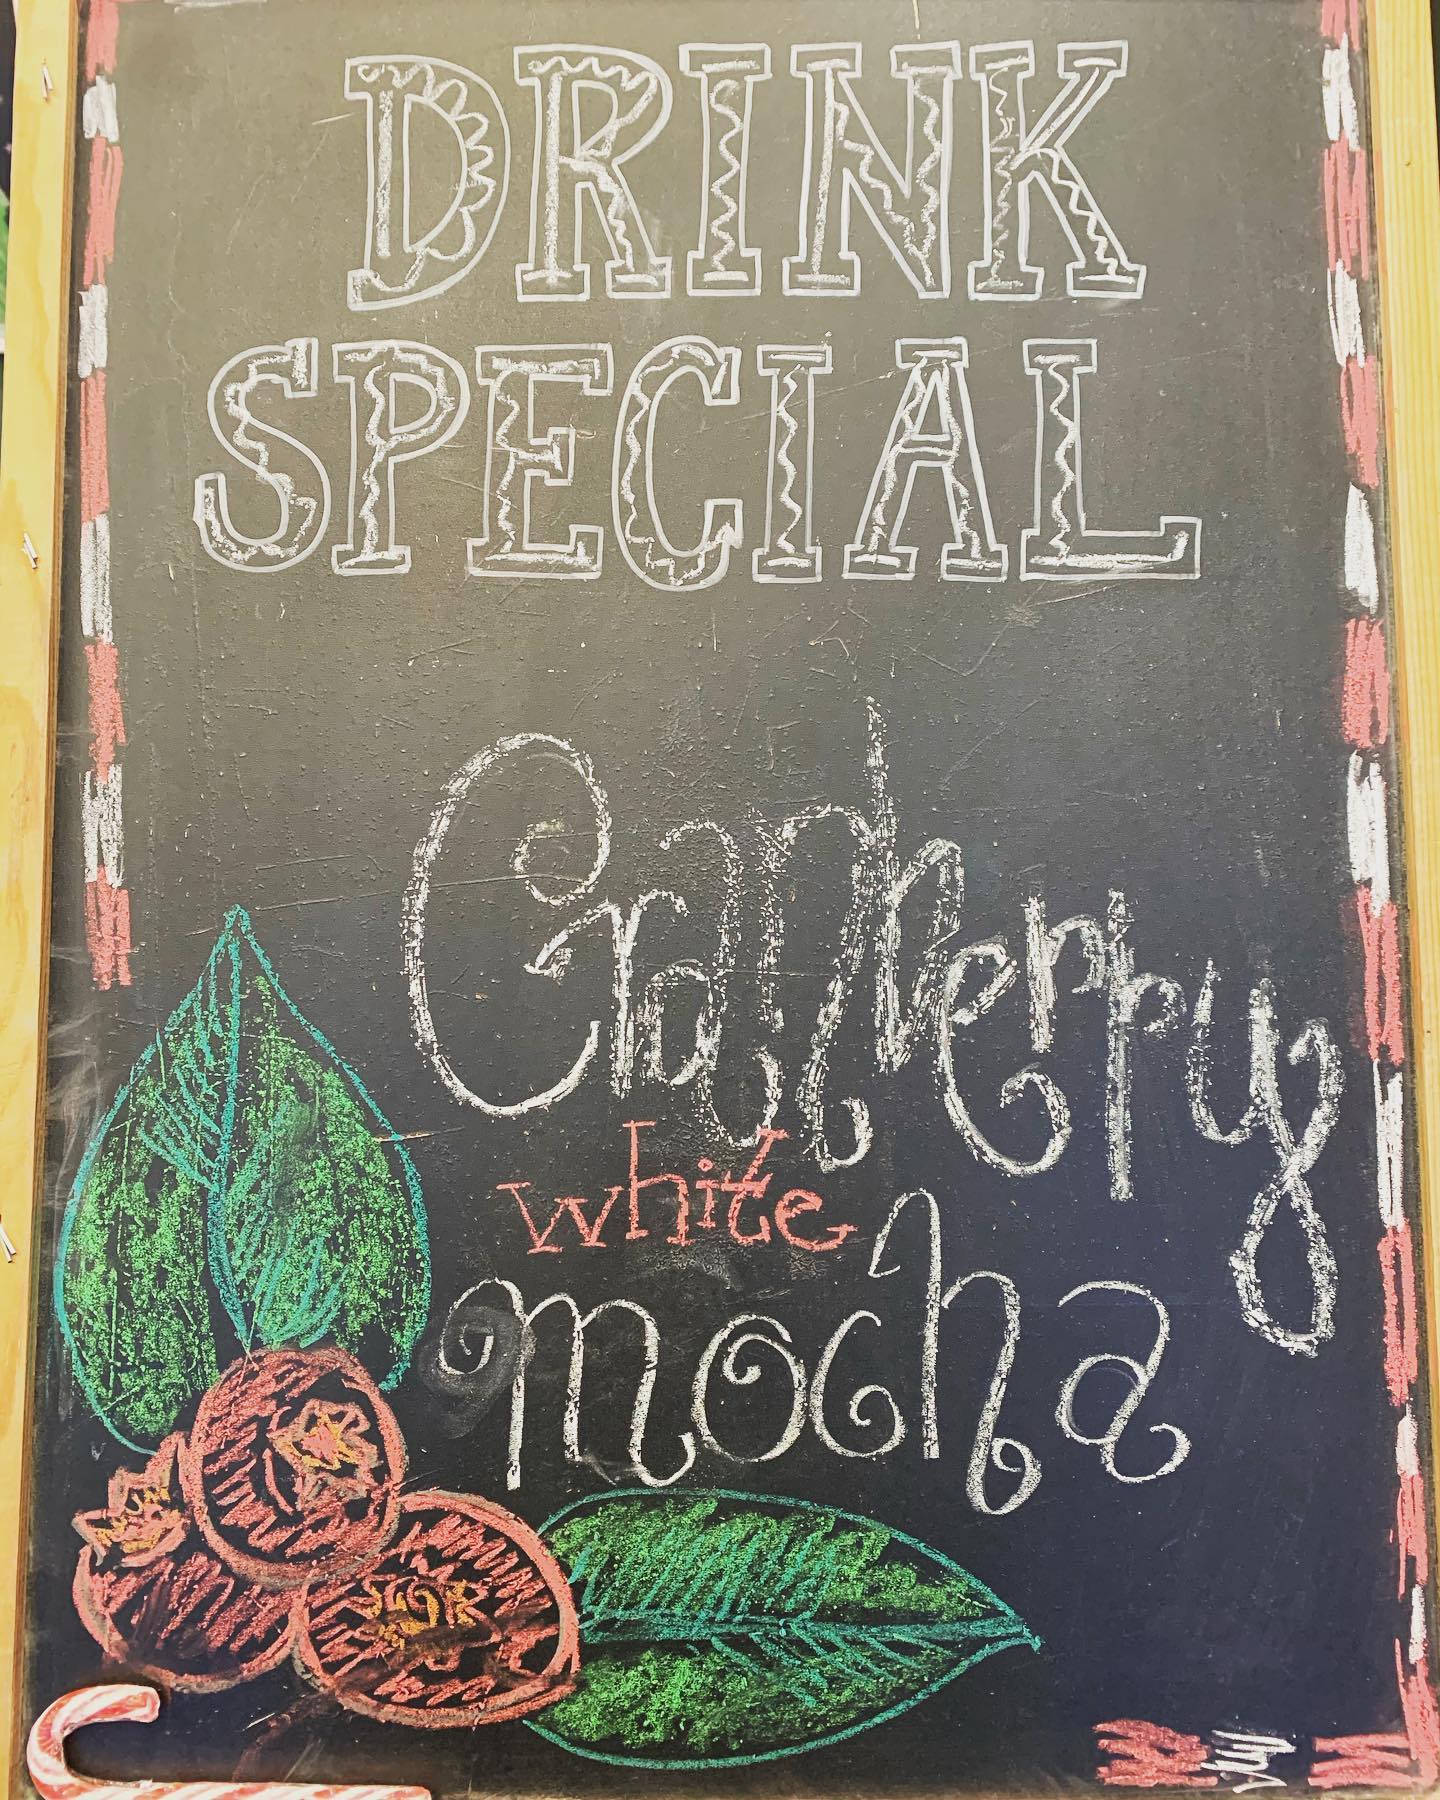 DRINK
SPECIAL
Cranberry
white
mocha